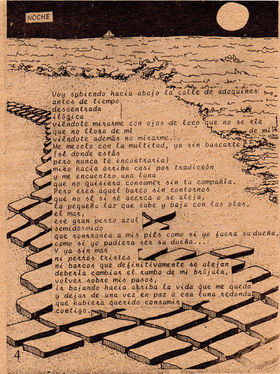 NOCHE
Voy subiendo hacia abajo la calle de adoquines
antes de tiempo
descentrada
ilógica
viéndote mirarme con ojos de loco que no se ríe
que no llora de mí
viéndote además no mirarme.
Me mezclo con la multitud, ya sin buscarte
(sé dónde estás
pero nunca te encontraría)
miro hacia arriba casi por tradición
y me encuentro una luna
que no quisiera consumir sin tu compañía.
Pero eres aquel barco sin contornos
que no sé si se acerca o se aleja,
la pequeña luz que sube y baja con las olas,
el mar,
ese gran perro azul
semidormido
que ronronea a mis pies como si yo fuera su dueña,
como si yo pudiera ser su dueña...
Y ya sin mar
ni perros tristes
ni barcos que definitivamente se alejan
debería cambiar el rumbo de mi brújula,
volver sobre mis pasos,
ir bajando hacia arriba la vida que me queda
y dejar de una vez en paz a esa luna redonda
que hubiera querido consumir
contigo.
4